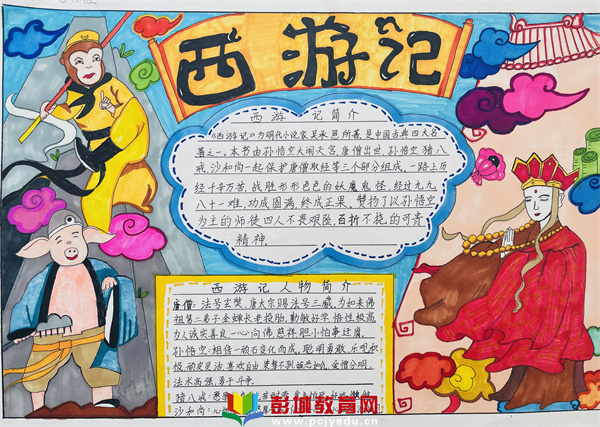 西游记
西游记简介
《西游记》为明代小说家吴承恩所著,是中国古典四大名
著之一。本书由孙悟空大闹天宫,唐僧出世,孙悟空 猪八
戒,沙和尚一起保护唐僧取经等三个部分组成,一路上历
经千辛万苦,战胜形形色色的妖魔鬼怪,经过九九
八十一难,功成圆满,终成正果。赞扬了以孙悟空
为主的师徒四人不畏艰险,百折不挠,的可贵
精神。
西游记人物简介
唐僧:法号玄奘,唐太宗赐法号三藏,为如来佛
祖第二弟子金蝉长老投胎,勤敏好学,悟性极高
为人诚实善良一心向佛,慈祥胆小怕事迂腐。
孙悟空:相传一硕石变化而成,聪明勇敢,乐观积
极,顽皮灵活,喜欢自由
法术高强,勇于斗争。
猪八戒:
沙和尚:
彭城教育网
www.pcjyedu.cn